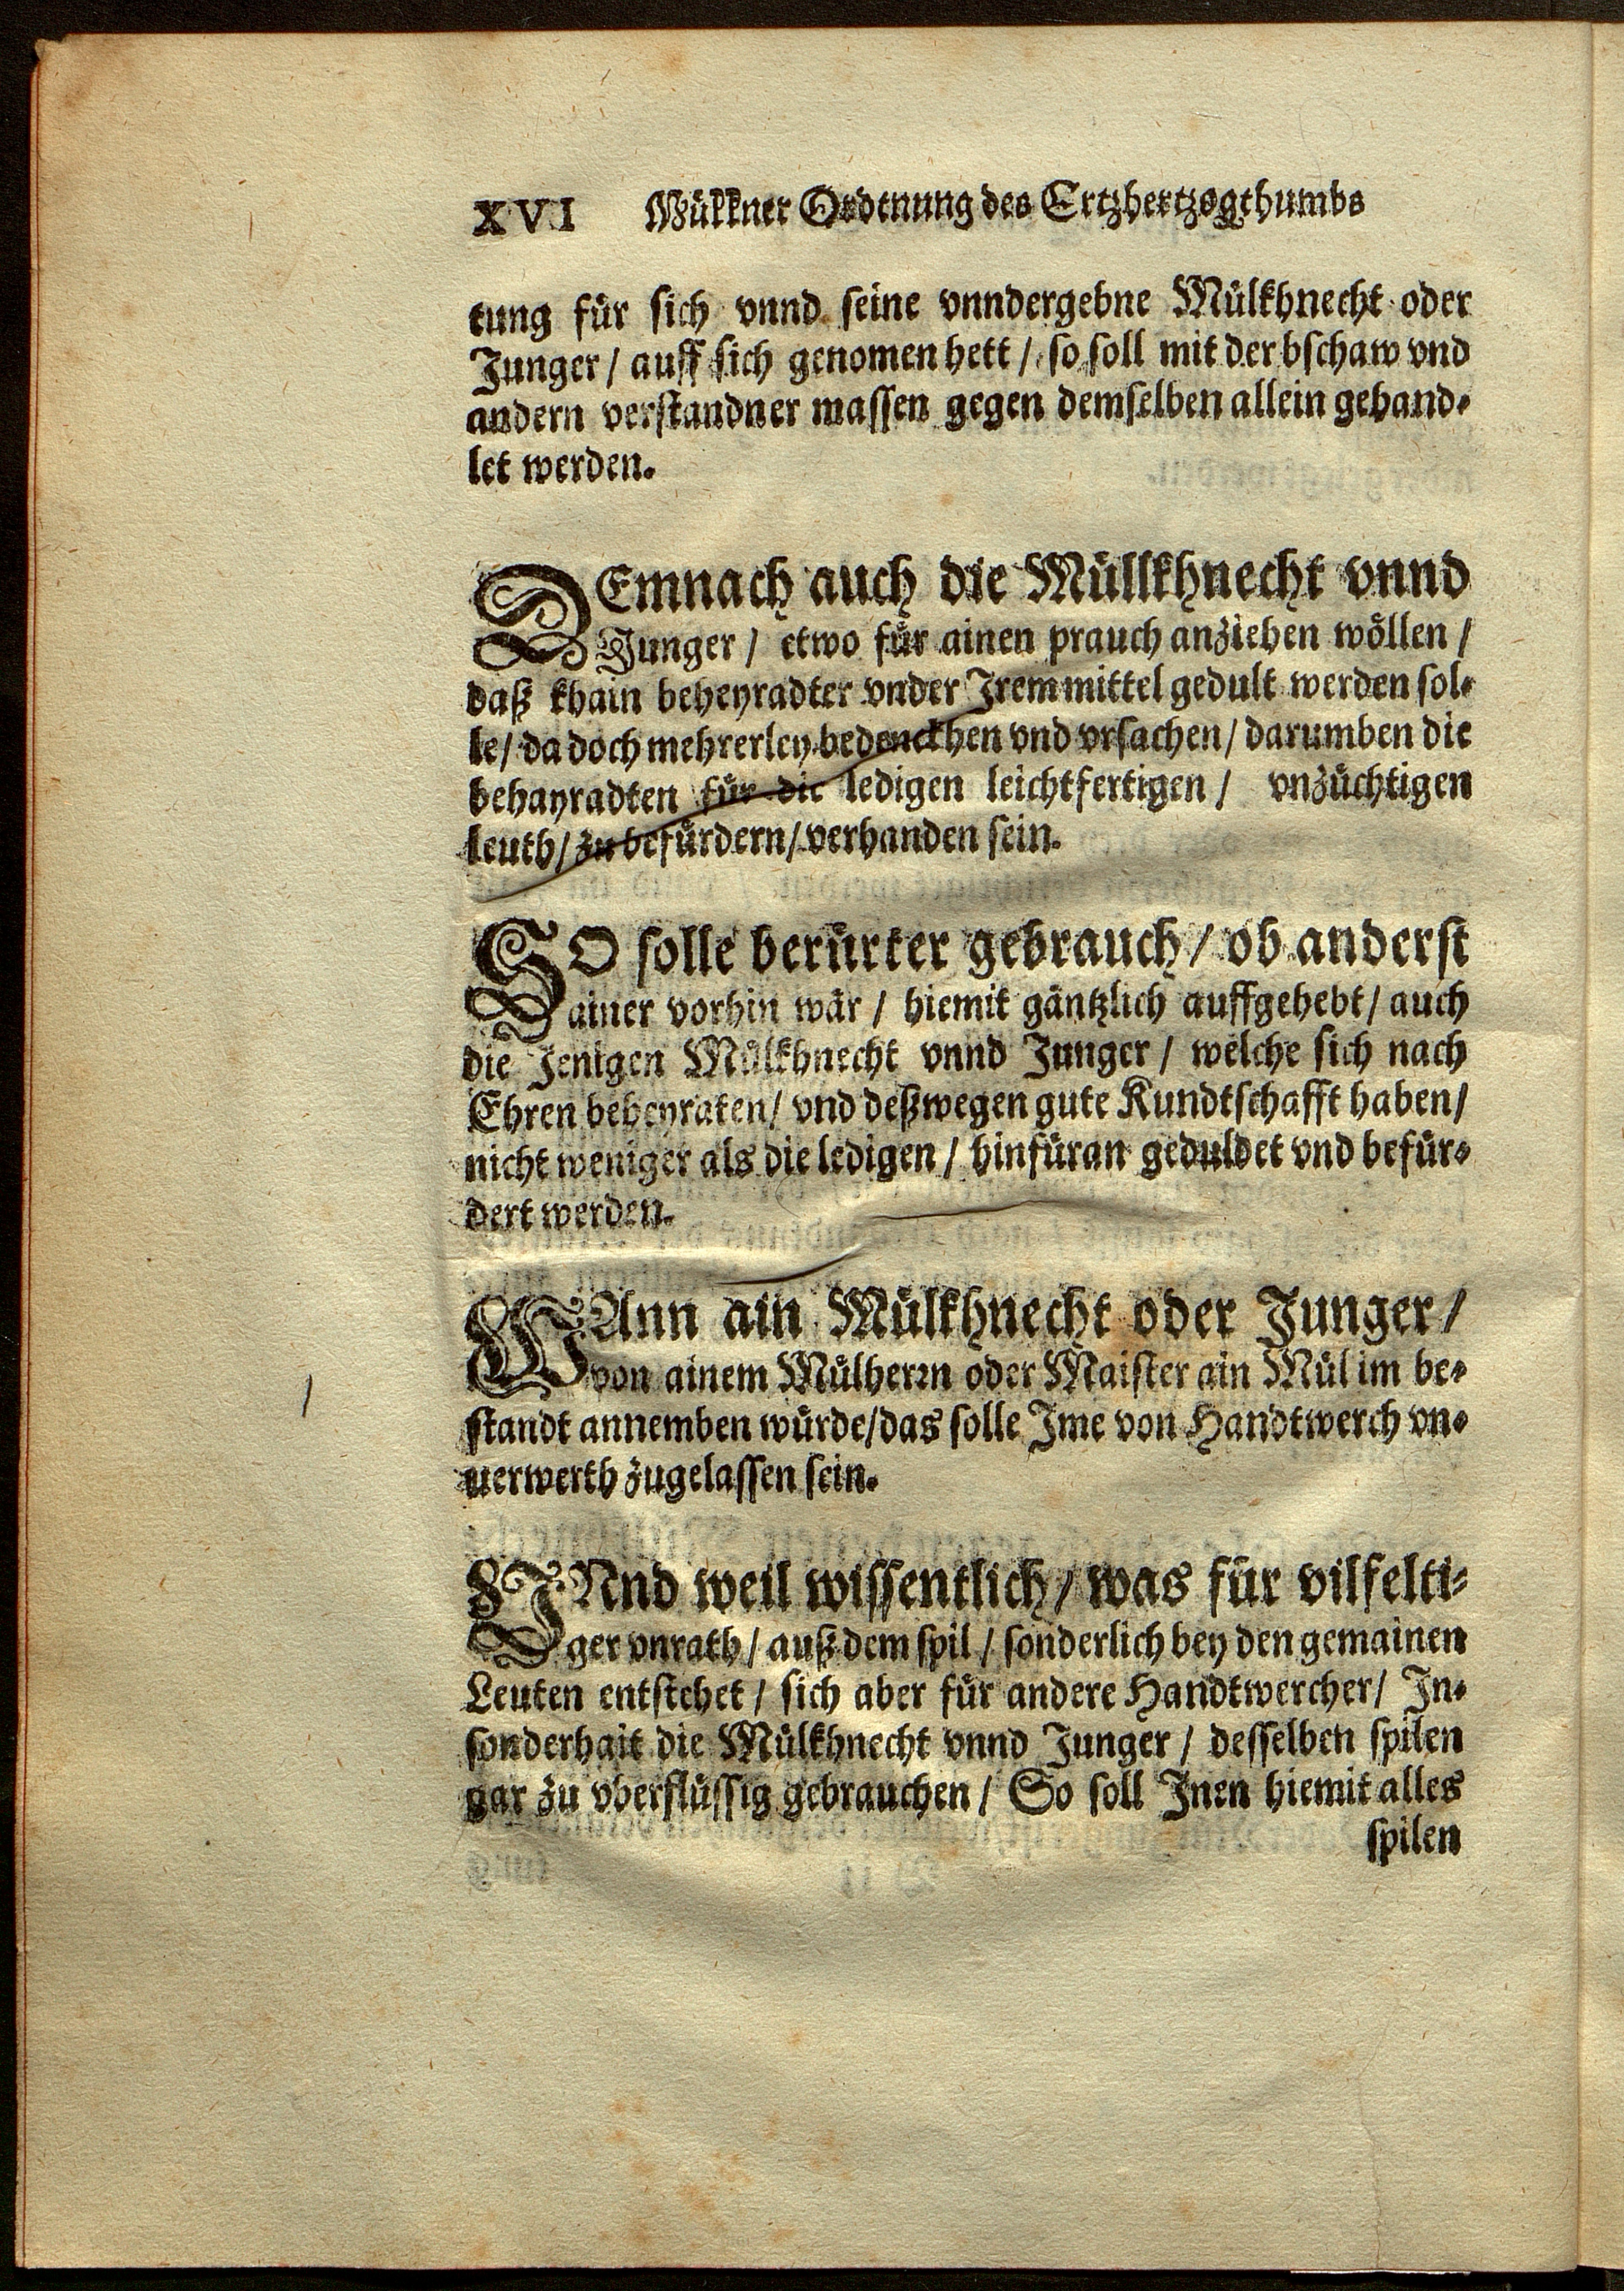 XVI Mülkner Ordtnung des Ertzhertzogthumbs
tung für sich vnnd seine vnndergebne Mülkhnecht oder
Junger / auff sich genomen hett / so soll mit der bschaw vnd
andern verstandner massen gegen demselben allein gehand-
let werden.
DEmnach auch die Müllkhnecht vnnd
Junger / etwo für ainen prauch anziehen wöllen /
daß khain beheyradter vnder Irem mittel gedult werden sol-
le / da doch mehrerley bedenckhen vnd vrsachen / darumben die
behayradten für die ledigen leichtfertigen / vnzüchtigen
leuth / zu befürdern / verhanden sein.
SO solle berürter gebrauch / ob anderst
ainer vorhin wär / hiemit gäntzlich auffgehebt / auch
die Jenigen Mülkhnecht vnnd Junger / welche sich nach
Ehren beheyraten / vnd deßwegen gute Kundtschafft haben /
nicht weniger als die ledigen / hinfüran geduldet vnd befür-
dert werden.
WAnn ain Mülkhnecht oder Junger /
von ainem Mülherrn oder Maister ain Mül im be-
standt annemben würde / das solle Ime von Handtwerch vn-
uerwerth zugelassen sein.
VNnd weil wissentlich / was für vilfelti-
ger vnrath / auß dem spil / sonderlich bey den gemainen
Leuten entstehet / sich aber für andere Handtwercher / In-
sonderhait die Mülkhnecht vnnd Junger / desselben spilen
gar zu vberflüssig gebrauchen / So soll Inen hiemit alles
spilen